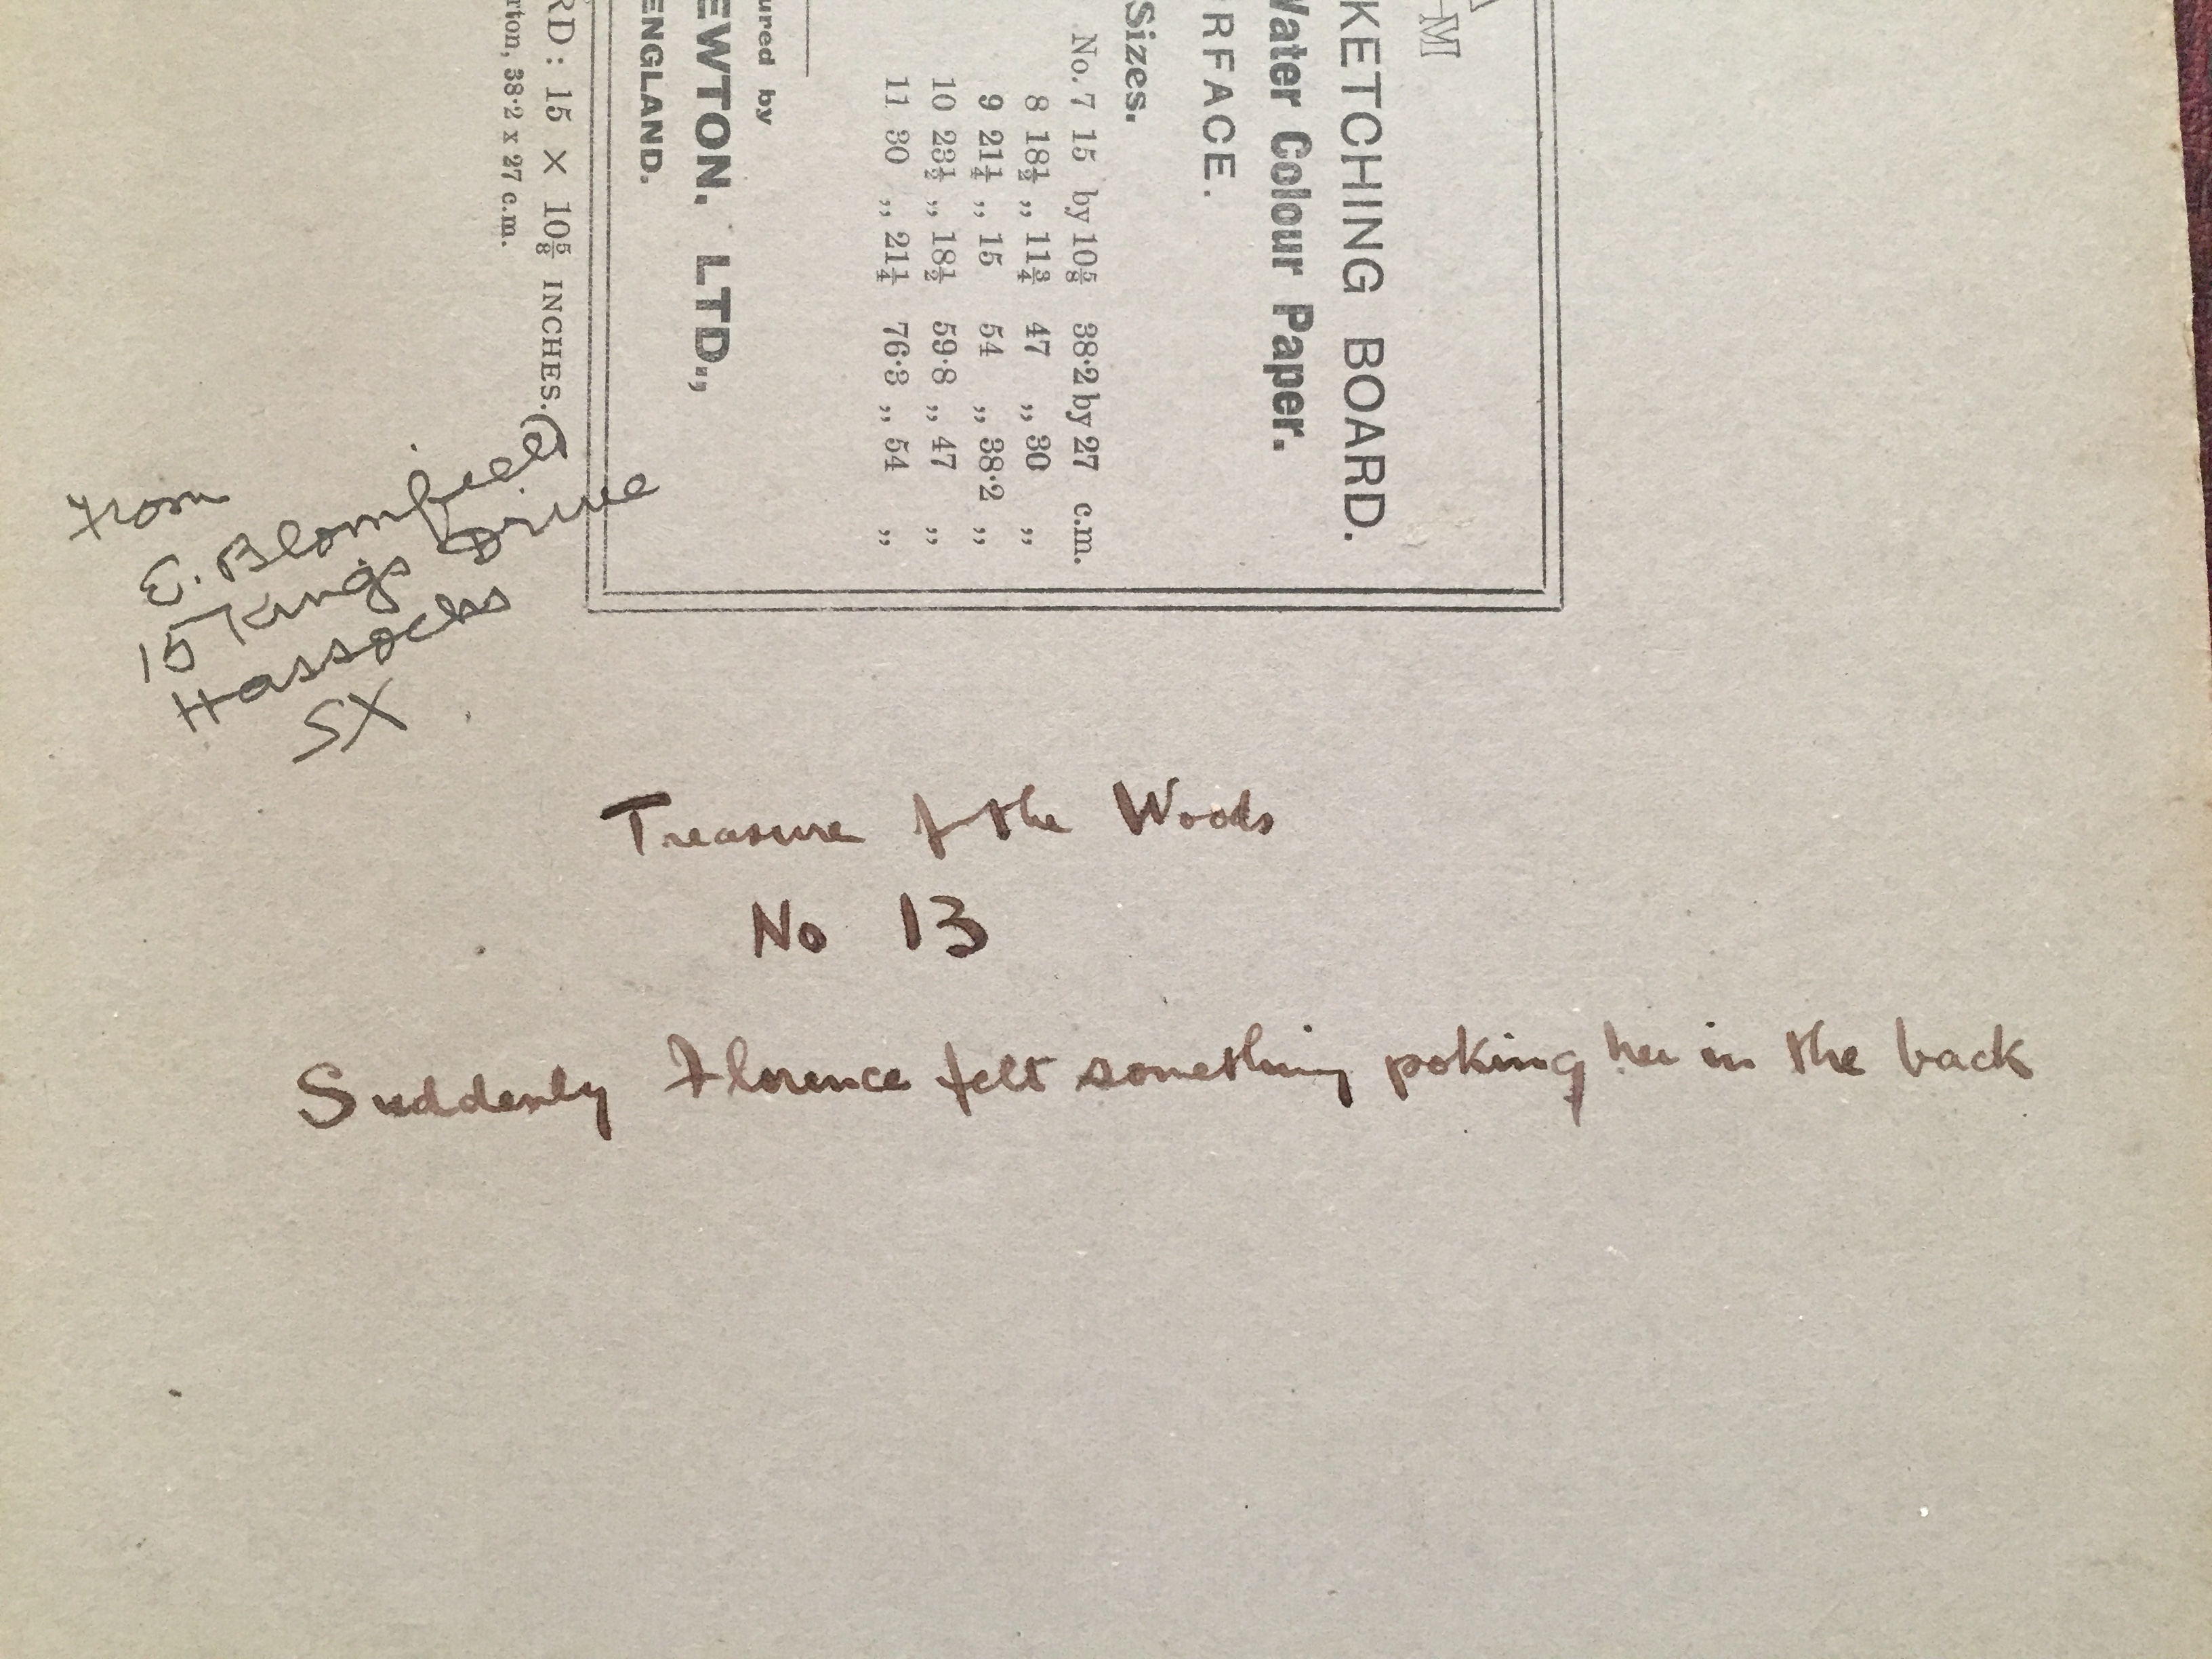 M
KETCHING BOARD.
Water Colour Paper.
RFACE.
Sizes.
No. 7 15 by 10⅝ 38·2 by 27 c.m.
8 18½ ,, 11¾ 47 ,, 30 ,,
9 21¼ ,, 15 54 ,, 38·2 ,,
10 23½ ,, 18½ 59·8 ,, 47 ,,
11 30 ,, 21¼ 76·3 ,, 54 ,,
ured by
EWTON. LTD.,
ENGLAND.
RD: 15 × 10⅝ INCHES.
rton, 38·2 x 27 c.m.
From
E. Blomfield
15 Kings Drive
Hassocks
SX
Treasure of the Woods
No 13
Suddenly Florence felt something poking her in the back